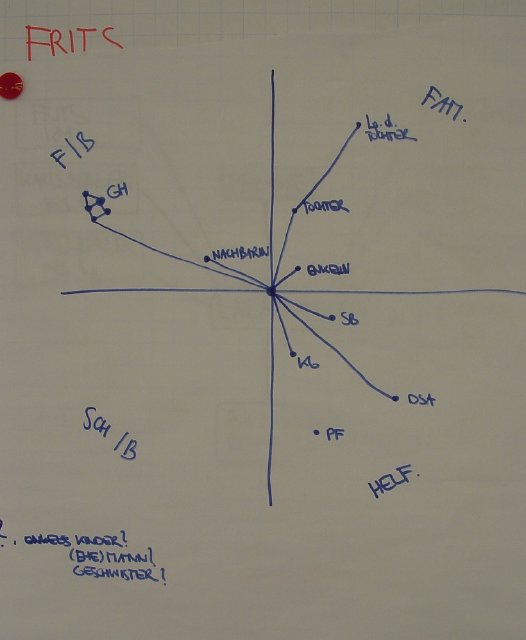 FRITS
FAM.
F/B
Lg.d.
TOCHTER
GH
TOCHTER
NACHBARIN
ENKELIN
SB
Kb
DSA
PF
SCH/B
HELF.
?. ENKELS KINDER?
(EHE)MANN?
GESCHWISTER?